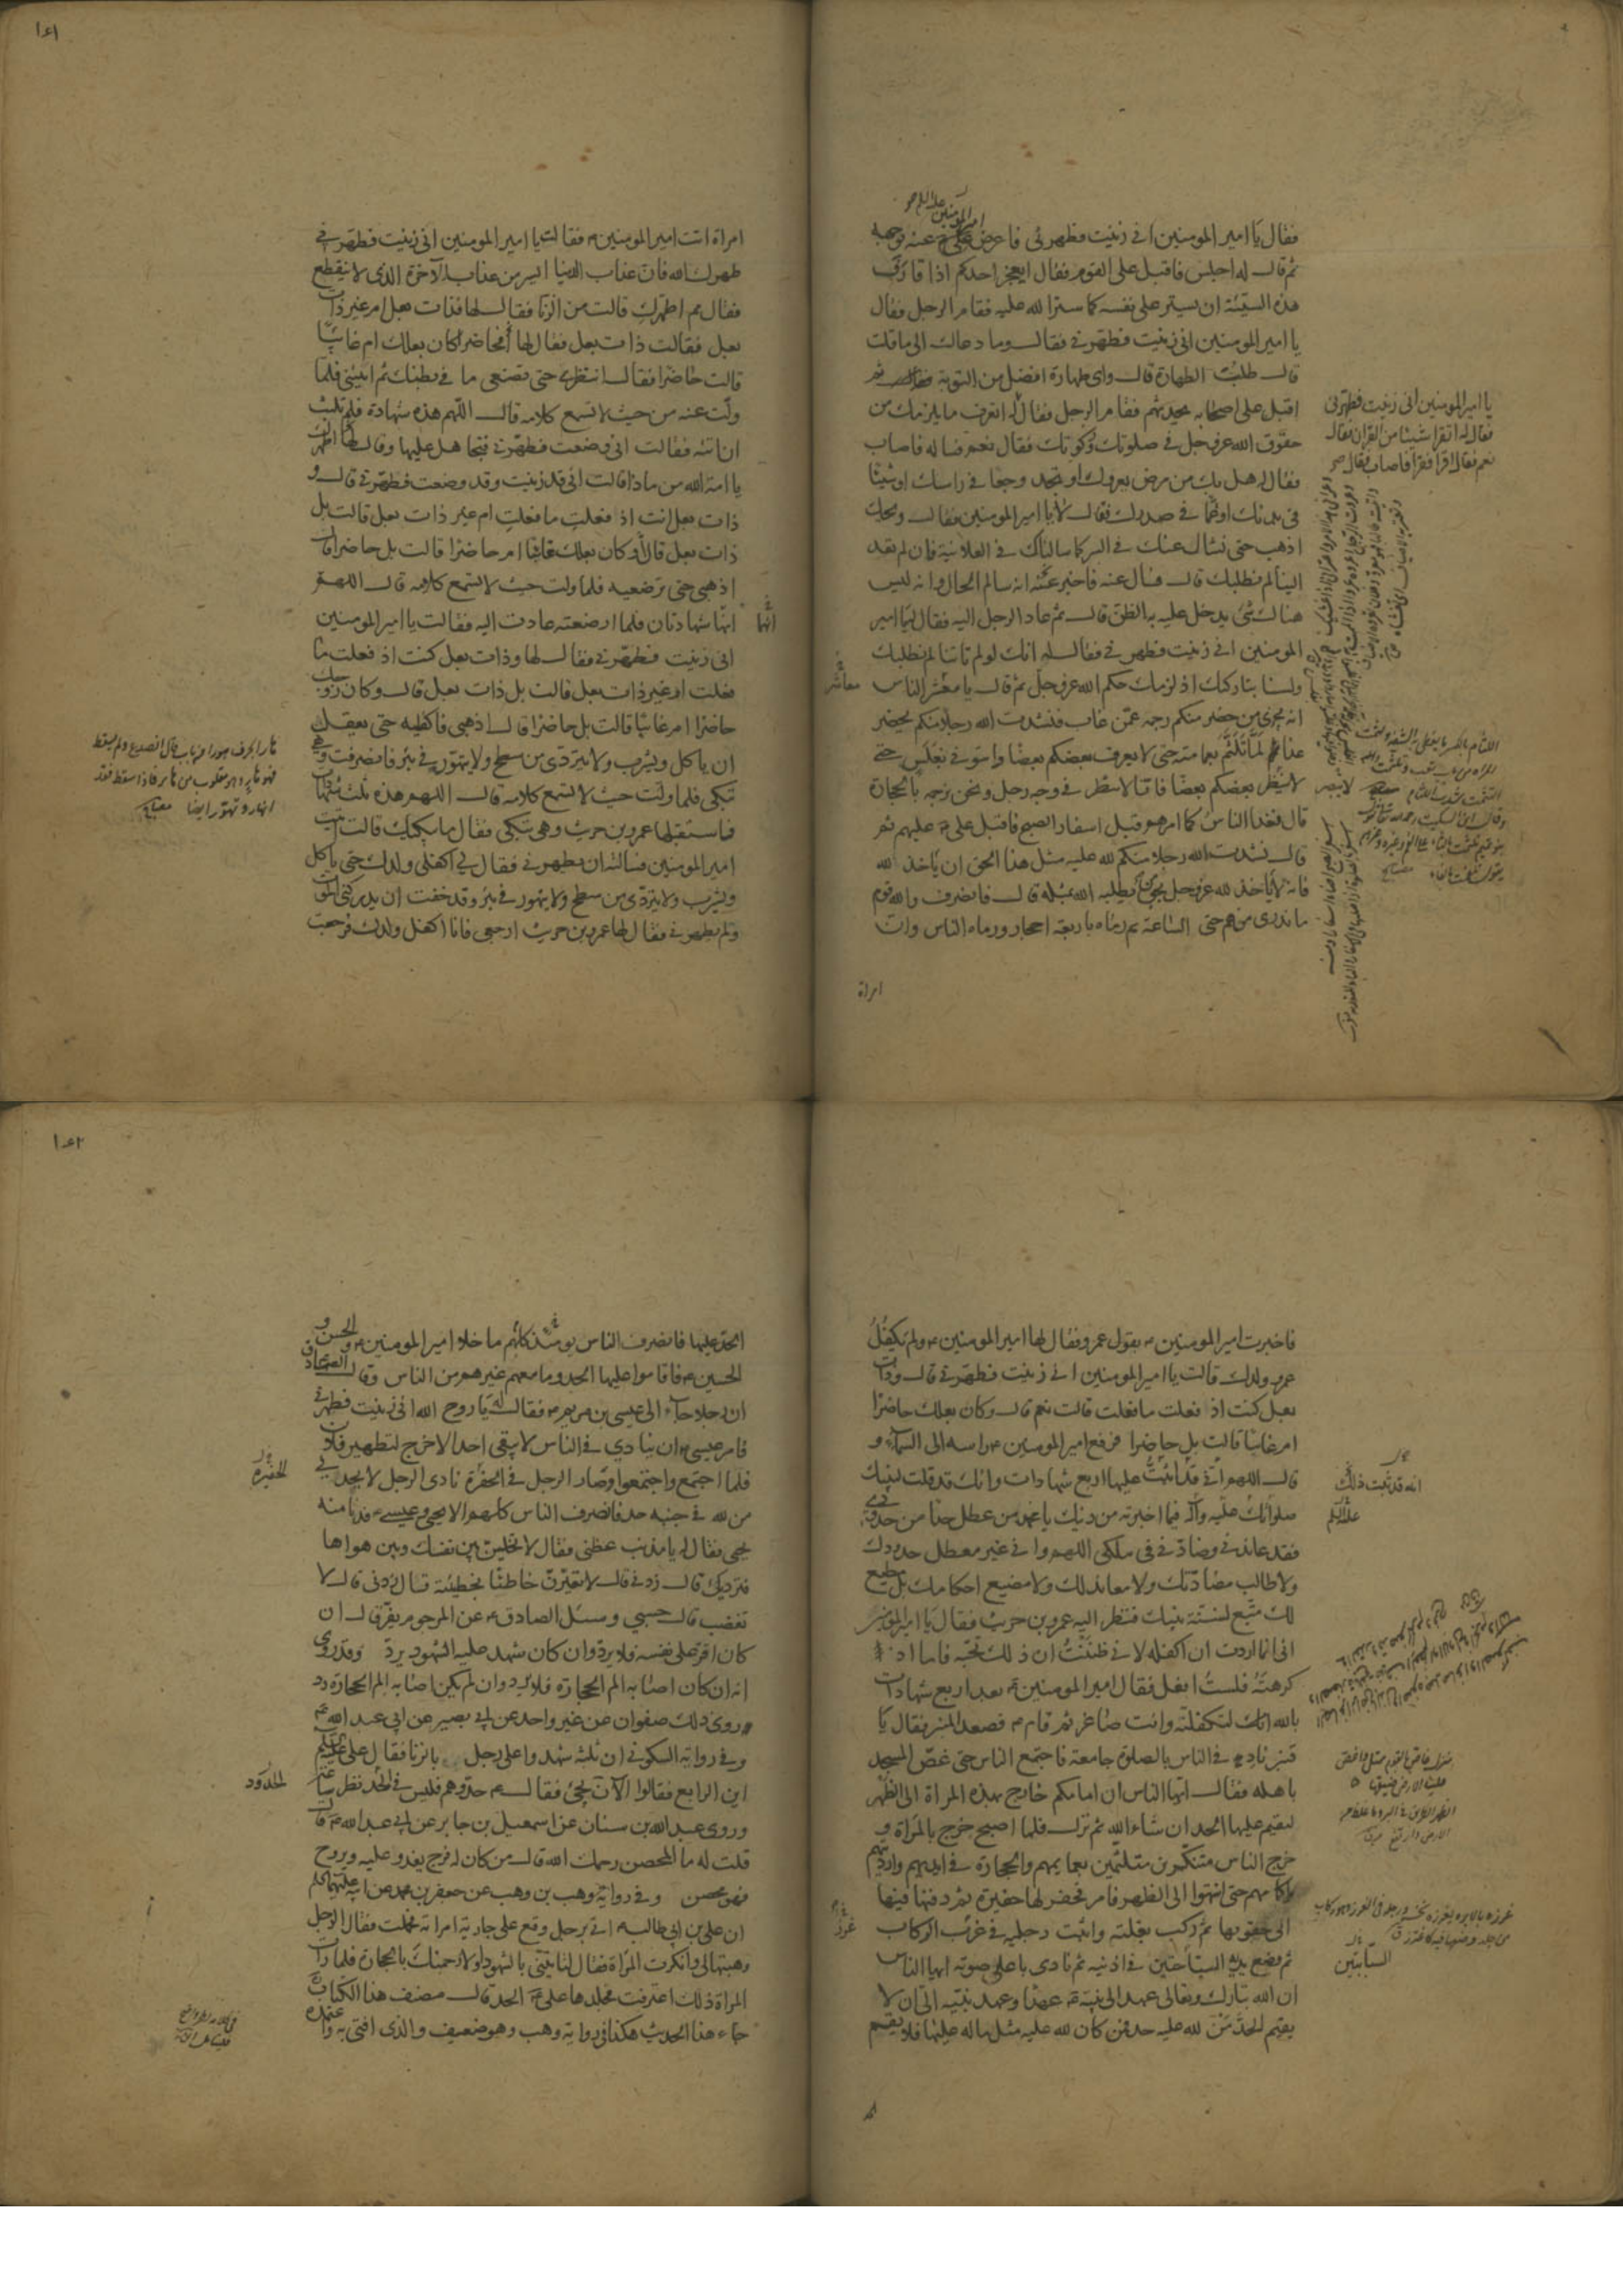 فقال يا امير المومنين انى زنيت فطهرنى فاعرض على عنه بوجهه
ثم قال له اجلس فاقبل على القوم فقال ايعجز احدكم اذا قارف
هذه السيئة ان يستر على نفسه كما ستر الله عليه فقام الرجل فقال
يا امير المومنين انى زنيت فطهرنى فقال وما دعاك الى ما قلت
قال طلبت الطهارة قال واى طهارة افضل من التوبة ثم
اقبل على اصحابه يحدثهم فقام الرجل فقال له اتعرف ما يلزمك من
حقوق الله عز و جل فى صلوتك وزكوتك فقال نعم فساله فاصاب
فقال له هل بك من مرض يعروك او تجد وجعا فى راسك او شيئا
فى بدنك او غما فى صدرك فقال لا يا امير المومنين فقال ويحك
اذهب حتى نسال عنك فى السر كما سالناك فى العلانية فان لم تعد
الينا لم نطلبك قال فسال عنه فاخبر عنه انه سالم الحال وانه ليس
هناك شئ يدخل عليه به الظن قال ثم عاد الرجل اليه فقال له يا امير
المومنين انى زنيت فطهرنى فقال له انك لو لم تاتنا لم نطلبك
ولسنا بتاركيك اذ لزمك حكم الله عز و جل ثم قال يا معشر الناس
انه يجزى من حضر منكم رجمه عمن غاب فنشدت الله رجلا منكم يحضر
غدا لما تلثم بعمامته حتى لا يعرف بعضكم بعضا واتونى بغلس حتى
لا ينظر بعضكم بعضا فاننا لا ننظر فى وجه رجل ونحن نرجمه بالحجارة
قال فغدا الناس كما امرهم قبل اسفار الصبح فاقبل على عليهم ثم
قال نشدت الله رجلا منكم لله عليه مثل هذا الحق ان ياخذ لله
فانه لا ياخذ لله عز و جل بحق من يطلبه الله بمثله قال فانصرف والله قوم
ما ندرى من هم حتى الساعة ثم رماه باربعة احجار ورماه الناس وان
امراة
يا امير المومنين انى زنيت فطهرنى
فقال له اتقرا شيئا من القران فقال
نعم فقال اقرا فقرا فاصاب فقال
معاشر
١٤١
امراة اتت امير المومنين فقالت يا امير المومنين انى زنيت فطهرنى
طهرك الله فان عذاب الدنيا ايسر من عذاب الآخرة الذى لا ينقطع
فقال مم اطهرك قالت من الزنا فقال لها فذات بعل ام غير ذات
بعل فقالت ذات بعل فقال لها افحاضرا كان بعلك ام غائبا
قالت حاضرا فقال انتظرى حتى تضعى ما فى بطنك ثم ائتينى فلما
ولت عنه من حيث لا تسمع كلامه قال اللهم هذه شهادة فلم تلبث
ان اتته فقالت انى وضعت فطهرنى فتجاهل عليها وقال لها اطهرك
يا امة الله من ماذا قالت انى قد زنيت وقد وضعت فطهرنى قال و
ذات بعل انت اذ فعلت ما فعلت ام غير ذات بعل قالت بل
ذات بعل قال وكان بعلك غائبا ام حاضرا قالت بل حاضرا قال
اذهبى حتى ترضعيه فلما ولت حيث لا تسمع كلامه قال اللهم
انها شهادتان فلما ارضعته عادت اليه فقالت يا امير المومنين
انى زنيت فطهرنى فقال لها وذات بعل كنت اذ فعلت ما
فعلت ام غير ذات بعل قالت بل ذات بعل قال وكان زوجك
حاضرا ام غائبا قالت بل حاضرا قال اذهبى فاكفليه حتى يعقل
ان ياكل ويشرب ولا يتردى من سطح ولا يتهور فى بئر فانصرفت وهى
تبكى فلما ولت حيث لا تسمع كلامه قال اللهم هذه ثلث شهادات
فاستقبلها عمرو بن حريث وهى تبكى فقال ما يبكيك قالت اتيت
امير المومنين فسالته ان يطهرنى فقال لى اكفلى ولدك حتى ياكل
ويشرب ولا يتردى من سطح ولا يتهور فى بئر وقد خفت ان يدركنى الموت
ولم يطهرنى فقال لها عمرو بن حريث ارجعى فانا اكفل ولدك فرجعت
انها
فاخبرت امير المومنين بقول عمرو فقال لها امير المومنين ولم يكفل
عمرو ولدك قالت يا امير المومنين انى زنيت فطهرنى قال وذات
بعل كنت اذ فعلت ما فعلت قالت نعم قال وكان بعلك حاضرا
ام غائبا قالت بل حاضرا فرفع امير المومنين راسه الى السماء و
قال اللهم انى قد اثبت عليها اربع شهادات وانك قد قلت لنبيك
صلواتك عليه وآله فيما اخبرته من دينك يا محمد من عطل حدا من حدودى
فقد عاندنى وضادنى فى ملكى اللهم وانى غير معطل حدودك
ولا طالب مضادتك ولا معاند لك ولا مضيع احكامك بل مطيع
لك متبع لسنة نبيك فنظر اليه عمرو بن حريث فقال يا امير المومنين
انى انما اردت ان اكفله لانى ظننت ان ذلك تحبه فاما اذ
كرهته فلست افعل فقال امير المومنين بعد اربع شهادات
بالله لتكفلنه وانت صاغر ثم قام فصعد المنبر فقال يا
قنبر ناد فى الناس بالصلوة جامعة فاجتمع الناس حتى غص المسجد
باهله فقال ايها الناس ان امامكم خارج بهذه المراة الى الظهر
ليقيم عليها الحد ان شاء الله ثم نزل فلما اصبح خرج بالمراة و
خرج الناس متنكرين متلثمين بعمايمهم والحجارة فى ايديهم وارديتهم
واكمامهم حتى انتهوا الى الظهر فامر فحفر لها حفيرة ثم دفنها فيها
الى حقويها ثم ركب بغلته واثبت رجليه فى غرز الركاب
ثم وضع يديه السباحتين فى اذنيه ثم نادى باعلى صوته ايها الناس
ان الله تبارك وتعالى عهد الى نبيه عهدا وعهد نبيه الى ان لا
يقيم الحد من لله عليه حد فمن كان لله عليه مثل ما له عليها فلا يقيم
انه قد ثبت ذلك
غرز
السبابتين
١٤٢
الحد عليها فانصرف الناس يومئذ كلهم ما خلا امير المومنين والحسن و
الحسين فاقاموا عليها الحد وما معهم غيرهم من الناس وقال الصادق
ان رجلا جاء الى عيسى بن مريم فقال له يا روح الله انى زنيت فطهرنى
فامر عيسى ان ينادى فى الناس لا يبقى احد الا خرج لتطهير فلان
فلما اجتمع واجتمعوا وصار الرجل فى الحفرة نادى الرجل لا يحدنى
من لله فى جنبه حد فانصرف الناس كلهم الا يحيى وعيسى فدنا منه
يحيى فقال له يا مذنب عظنى فقال لا تخلين بين نفسك وبين هواها
فترديك قال زدنى قال لا تعيرن خاطئا بخطيئة قال زدنى قال لا
تغضب قال حسبى وسئل الصادق عن المرجوم يفر قال ان
كان اقر على نفسه فلا يرد وان كان شهد عليه الشهود يرد وقد روى
انه ان كان اصابه الم الحجارة فلا يرد وان لم يكن اصابه الم الحجارة رد
روى ذلك صفوان عن غير واحد عن ابى بصير عن ابى عبد الله
وفى رواية السكونى ان ثلثة شهدوا على رجل بالزنا فقال على
اين الرابع فقالوا الآن يجئ فقال حدوهم فليس فى الحد نظر ساعة
وروى عبد الله بن سنان عن اسمعيل بن جابر عن ابى عبد الله قال
قلت له ما المحصن رحمك الله قال من كان له فرج يغدو عليه ويروح
فهو محصن وفى رواية وهب بن وهب عن جعفر بن محمد عن ابيه
ان على بن ابى طالب اتى برجل وقع على جارية امراته فحملت فقال الرجل
وهبتها لى وانكرت المراة فقال لتاتينى بالشهود او لارجمنك بالحجارة فلما رات
المراة ذلك اعترفت فجلدها على الحد قال مصنف هذا الكتاب
جاء هذا الحديث هكذا فى رواية وهب وهو ضعيف والذى افتى به واعتمده
الحفيرة
الحدود